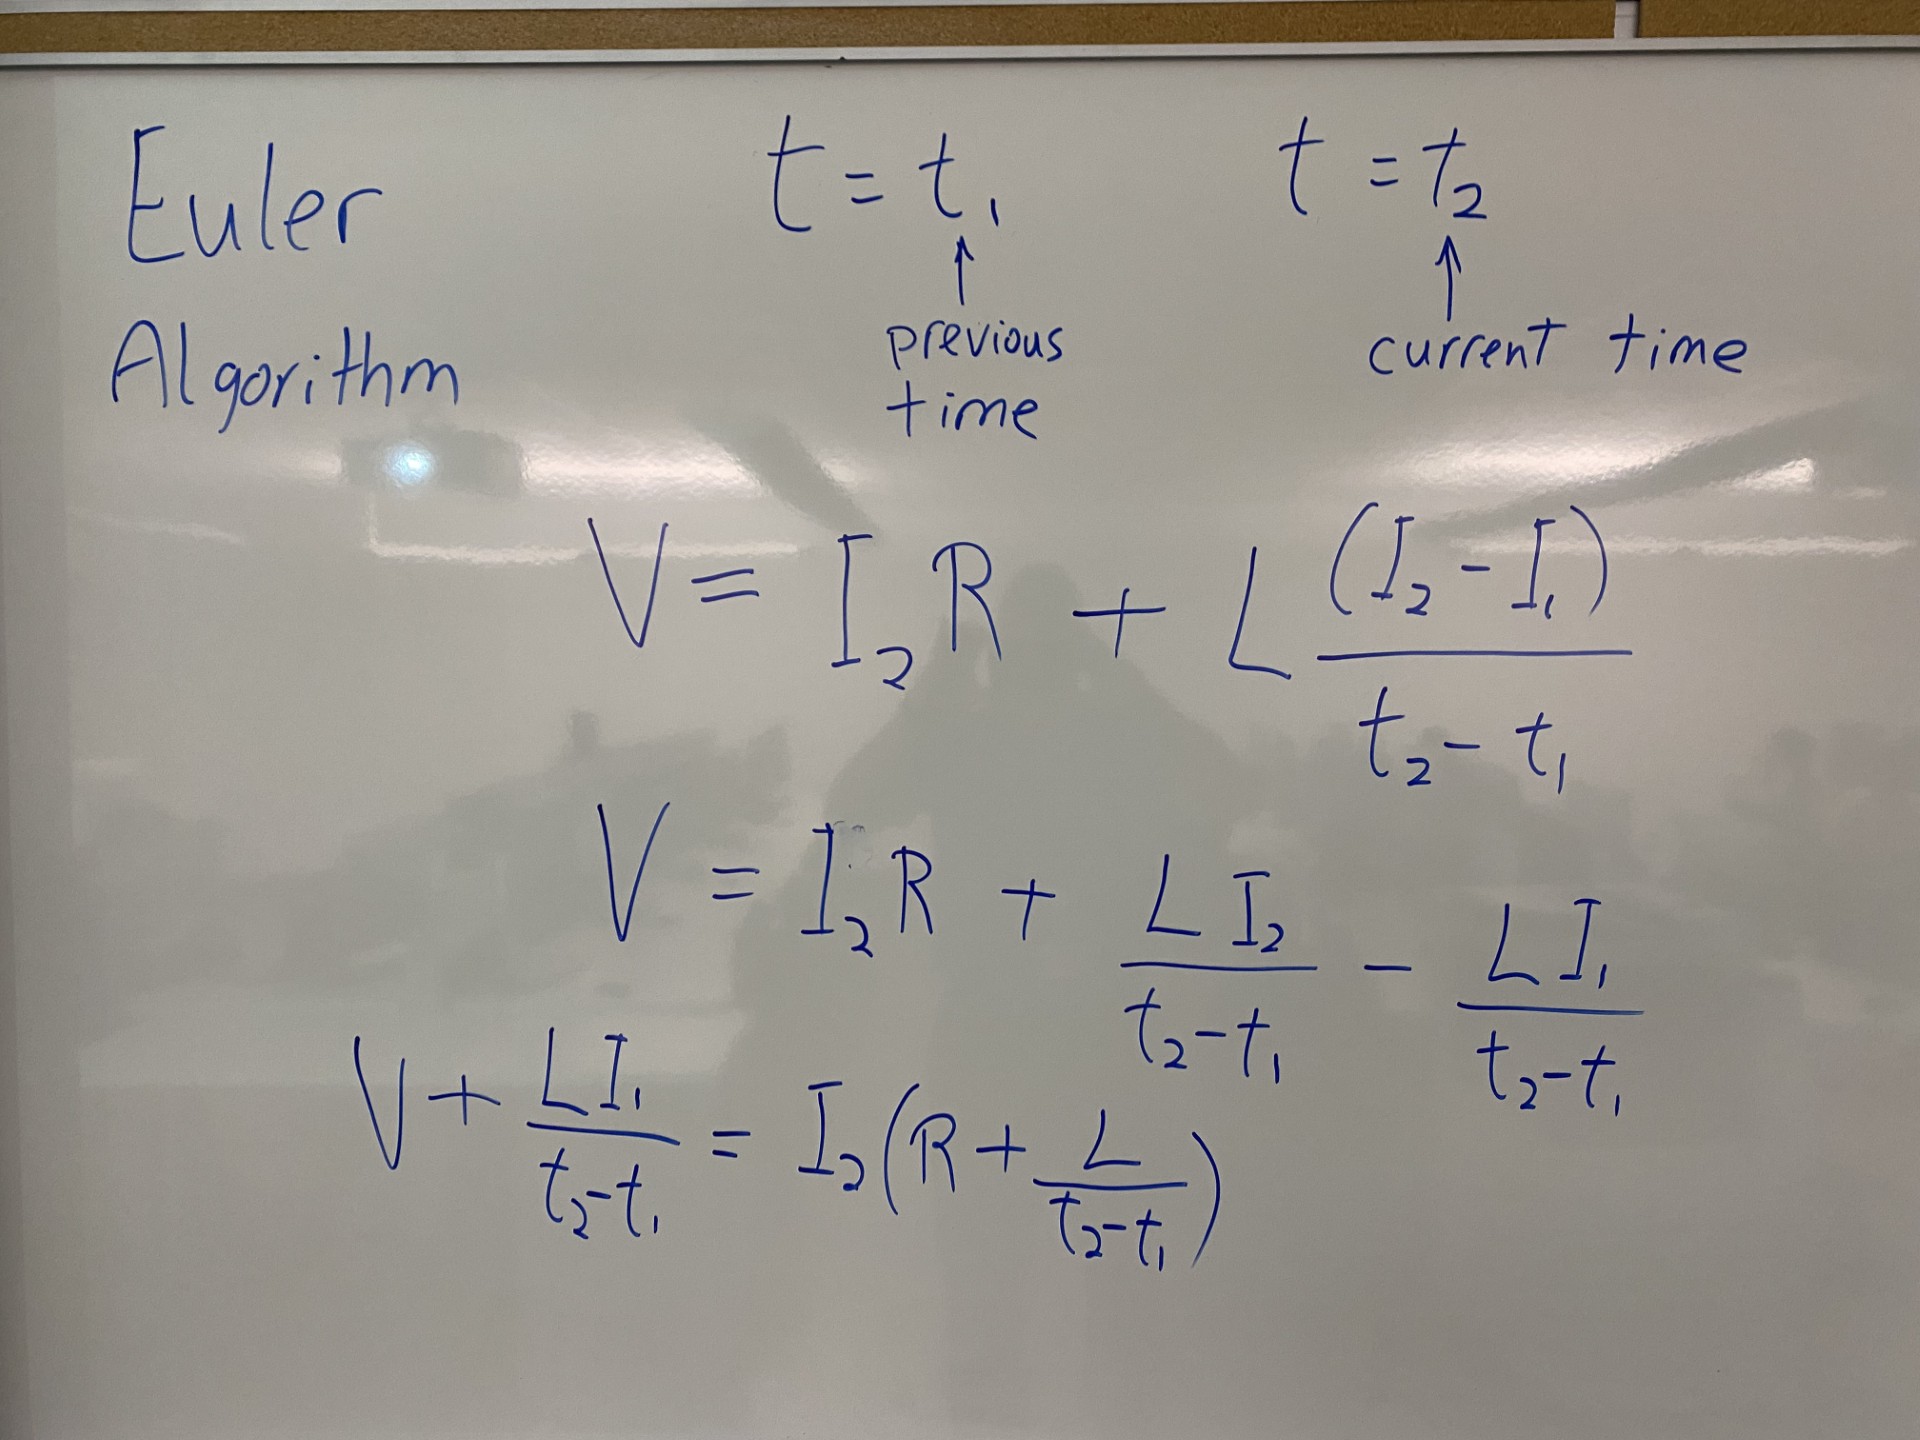 Euler
Algorithm
t = t₁
↑
previous
time
t = t₂
↑
current time
V = I₂R + L (I₂ - I₁) / t₂ - t₁
V = I₂R + L I₂ / t₂ - t₁ - L I₁ / t₂ - t₁
V + L I₁ / t₂ - t₁ = I₂ (R + L / t₂ - t₁)